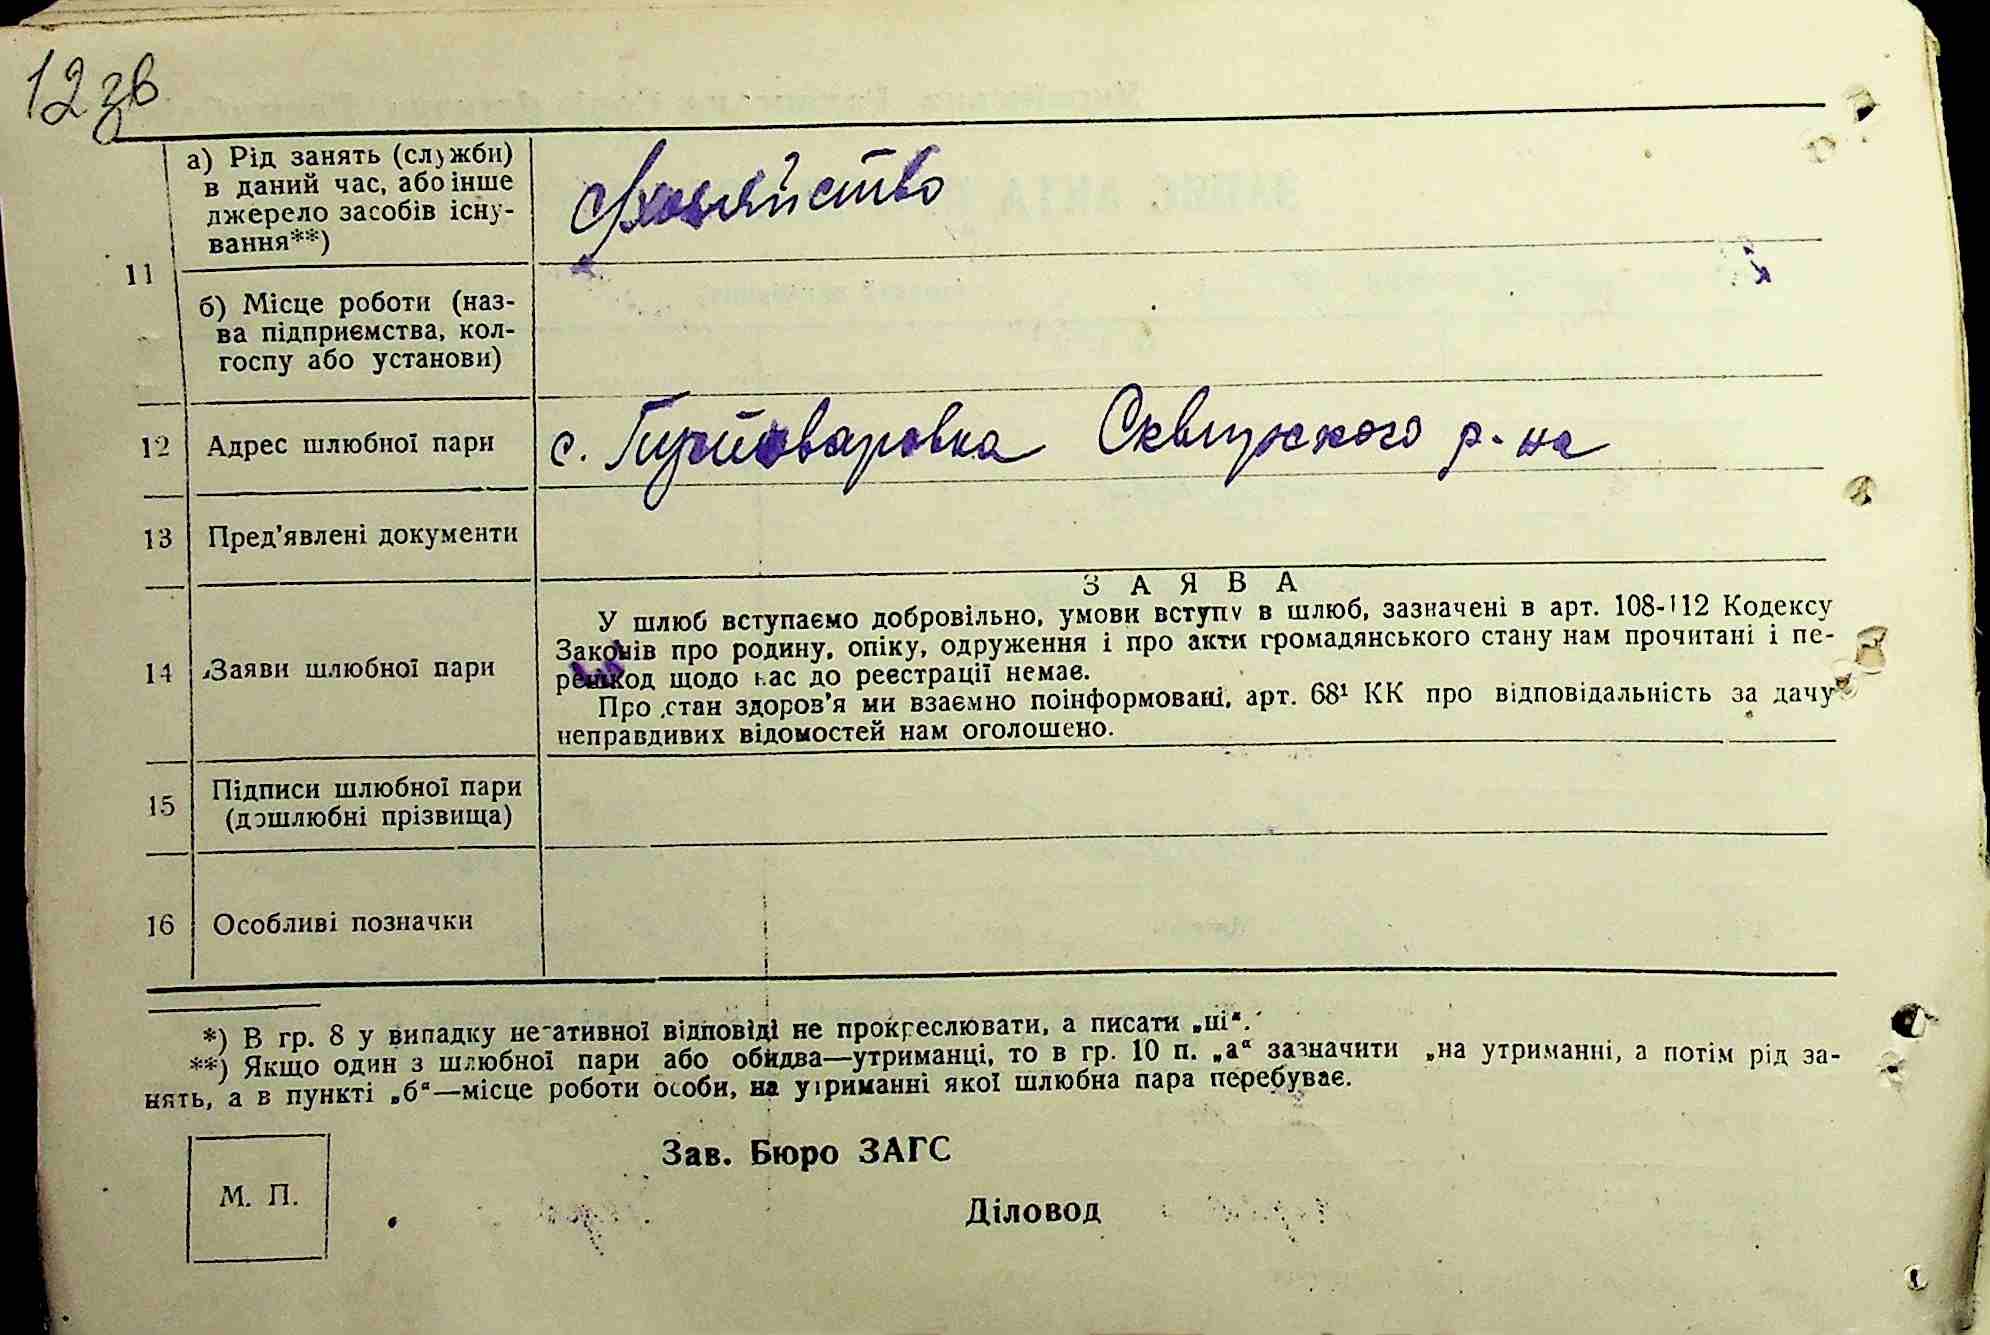 12зв
а) Рід занять (служби)
в даний час, або інше
джерело засобів існу-
вання**)
хозяйство
11
б) Місце роботи (наз-
ва підприємства, кол-
госпу або установи)
12 Адрес шлюбної пари
с. Пустоваровка Сквирского р-на
13 Пред'явлені документи
14 Заяви шлюбної пари
ЗАЯВА
У шлюб вступаємо добровільно, умови вступу в шлюб, зазначені в арт. 108-112 Кодексу
Законів про родину, опіку, одруження і про акти громадянського стану нам прочитані і пе-
решкод щодо нас до реєстрації немає.
Про стан здоров'я ми взаємно поінформовані, арт. 68¹ КК про відповідальність за дачу
неправдивих відомостей нам оголошено.
15 Підписи шлюбної пари
(дошлюбні прізвища)
16 Особливі позначки
*) В гр. 8 у випадку негативної відповіді не прокреслювати, а писати „ні“.
**) Якщо один з шлюбної пари або обидва—утриманці, то в гр. 10 п. „а“ зазначити „на утриманні, а потім рід за-
нять, а в пункті „б“—місце роботи особи, на утриманні якої шлюбна пара перебуває.
Зав. Бюро ЗАГС
М. П.
Діловод